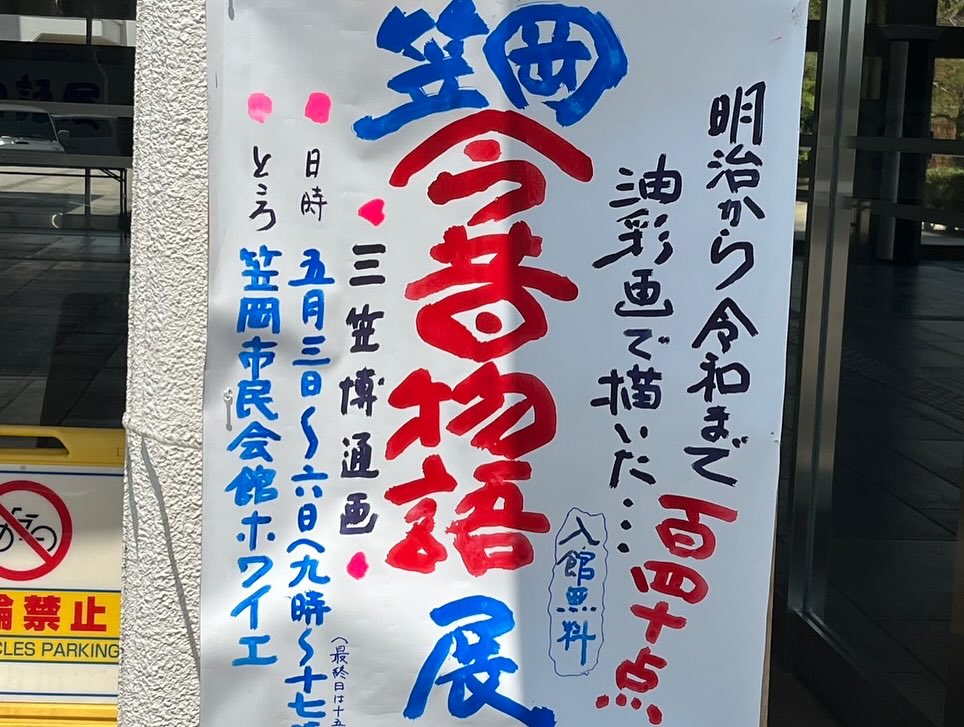 明治から令和まで
油彩画で描いた…百四十点
入館無料
笠岡
今昔物語
展
三笠博通画
日時 五月三日〜六日(九時〜十七
(最終日は十五
ところ 笠岡市民会館ホワイエ
輪禁止
CLES PARKING